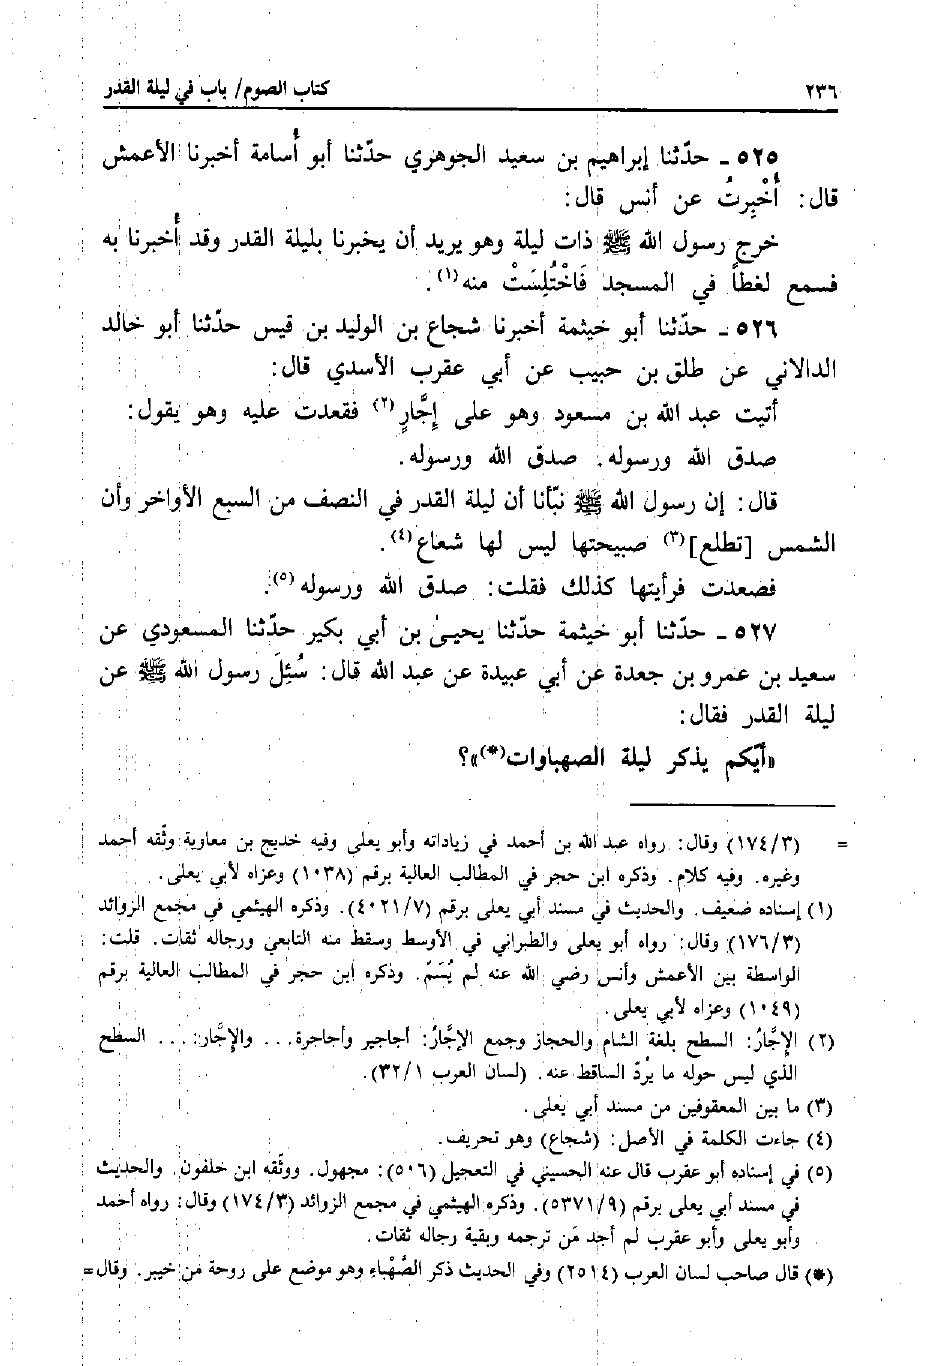 ٢٣٦ كتاب الصوم/ باب في ليلة القدر
٥٢٥ ـ حدّثنا إبراهيم بن سعيد الجوهري حدّثنا أبو أُسامة أخبرنا الأعمش
قال: أُخْبِرتُ عن أنس قال:
خرج رسول الله ﷺ ذات ليلة وهو يريد أن يخبرنا بليلة القدر وقد أُخبرنا به
فسمع لغطاً في المسجد فَاخْتُلِسَتْ منه(١).
٥٢٦ ـ حدّثنا أبو خيثمة أخبرنا شجاع بن الوليد بن قيس حدّثنا أبو خالد
الدالاني عن طلق بن حبيب عن أبي عقرب الأسدي قال:
أتيت عبد الله بن مسعود وهو على إجَّارٍ(٢) فقعدت عليه وهو يقول:
صدق الله ورسوله. صدق الله ورسوله.
قال: إن رسول الله ﷺ نبّأنا أن ليلة القدر في النصف من السبع الأواخر وأن
الشمس [تطلع](٣) صبيحتها ليس لها شعاع(٤).
فصعدت فرأيتها كذلك فقلت: صدق الله ورسوله(٥).
٥٢٧ ـ حدّثنا أبو خيثمة حدّثنا يحيىٰ بن أبي بكير حدّثنا المسعودي عن
سعيد بن عمرو بن جعدة عن أبي عبيدة عن عبد الله قال: سُئِلَ رسول الله ﷺ عن
ليلة القدر فقال:
«أيّكم يذكر ليلة الصهباوات(*)»؟
= (١٧٤/٣) وقال: رواه عبد الله بن أحمد في زياداته وأبو يعلى وفيه خديج بن معاوية وثّقه أحمد
وغيره. وفيه كلام. وذكره ابن حجر في المطالب العالية برقم (١٠٣٨) وعزاه لأبي يعلى.
(١) إسناده ضعيف. والحديث في مسند أبي يعلى برقم (٤٠٢١/٧). وذكره الهيثمي في مجمع الزوائد
(١٧٦/٣) وقال: رواه أبو يعلى والطبراني في الأوسط وسقط منه التابعي ورجاله ثقات. قلت:
الواسطة بين الأعمش وأنس رضي الله عنه لم يُسَمّ. وذكره ابن حجر في المطالب العالية برقم
(١٠٤٩) وعزاه لأبي يعلى.
(٢) الإجَّارُ: السطح بلغة الشام والحجاز وجمع الإجَّارُ: أجاجير وأجاجرة... والإجَّار:... السطح
الذي ليس حوله ما يُردّ الساقط عنه. (لسان العرب ٣٢/١).
(٣) ما بين المعقوفين من مسند أبي يعلى.
(٤) جاءت الكلمة في الأصل: (شجاع) وهو تحريف.
(٥) في إسناده أبو عقرب قال عنه الحسيني في التعجيل (٥٠٦): مجهول. ووثّقه ابن خلفون. والحديث
في مسند أبي يعلى برقم (٥٣٧١/٩). وذكره الهيثمي في مجمع الزوائد (١٧٤/٣) وقال: رواه أحمد
وأبو يعلى وأبو عقرب لم أجد مَن ترجمه وبقية رجاله ثقات.
(*) قال صاحب لسان العرب (٢٥١٤) وفي الحديث ذكر الصَّهْبَاءِ وهو موضع على روحة من خيبر. وقال=